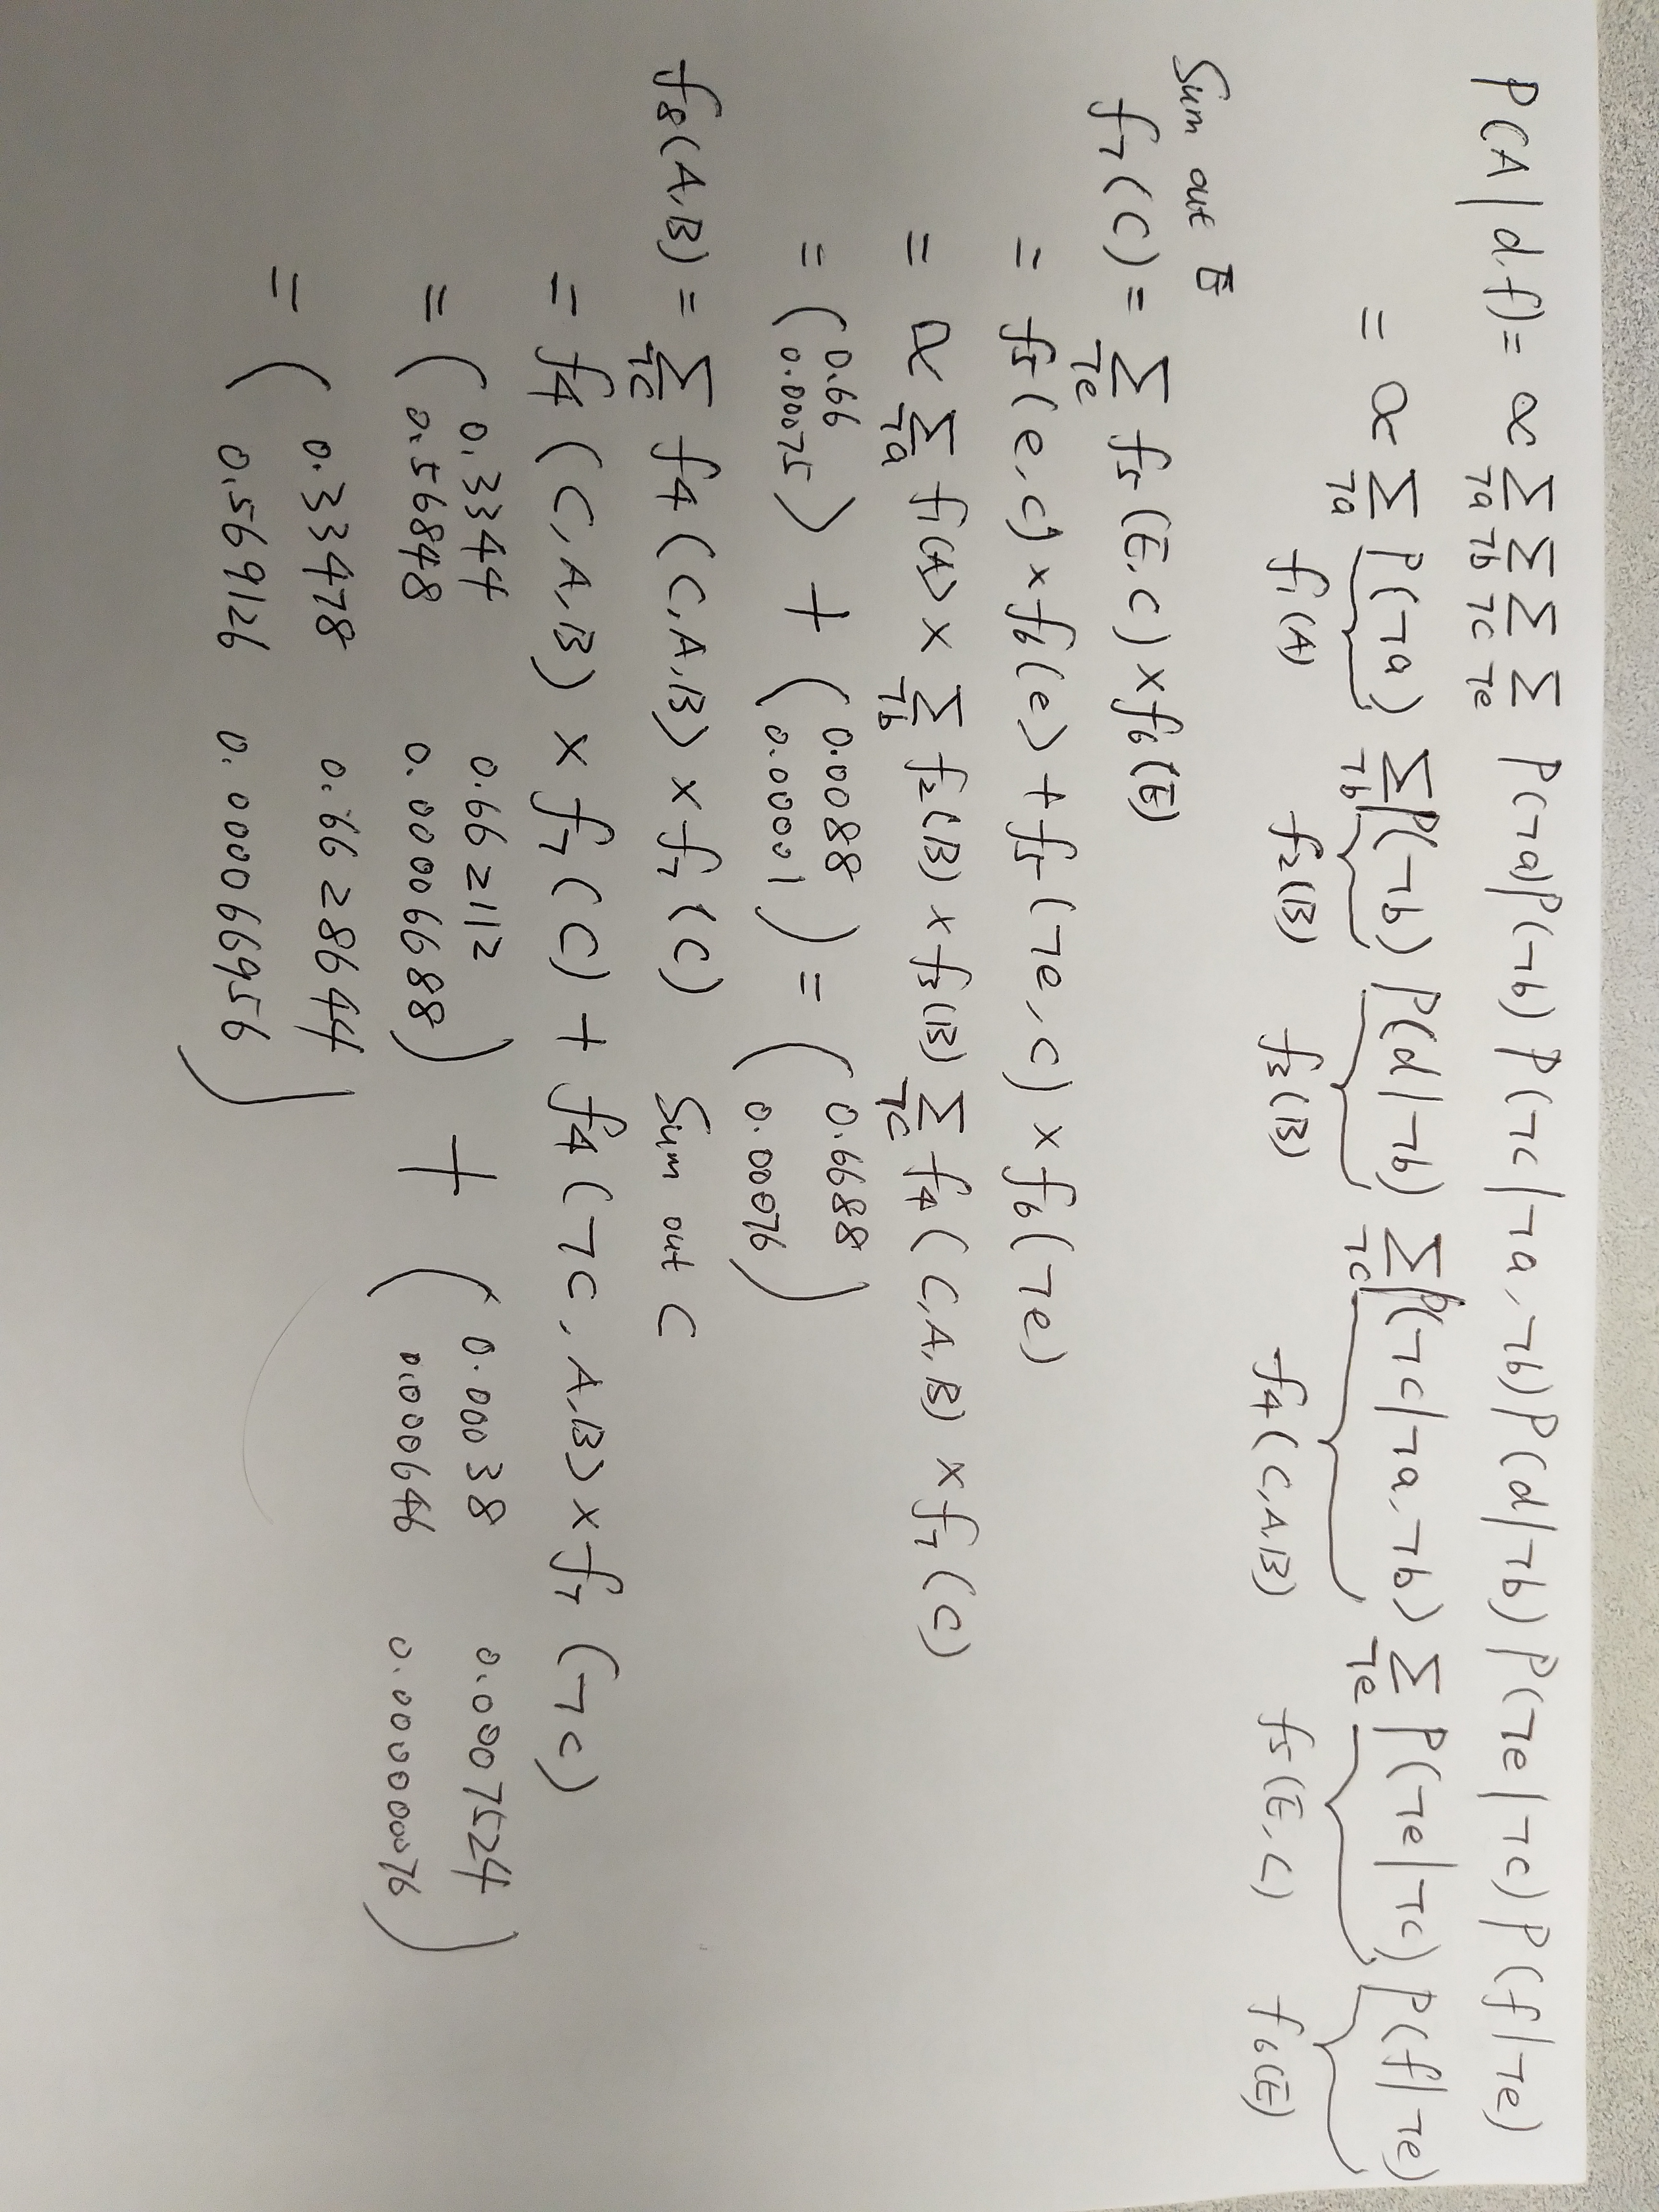 P(A|d,f) = α Σ¬a Σ¬b Σ¬c Σ¬e P(¬a)P(¬b) P(¬c|¬a,¬b)P(d|¬b)P(¬e|¬c)P(f|¬e)
= α Σ¬a P(¬a) Σ¬b P(¬b) P(d|¬b) Σ¬c P(¬c|¬a,¬b) Σ¬e P(¬e|¬c) P(f|¬e)
f1(A) f2(B) f3(B) f4(C,A,B) f5(E,C) f6(E)
Sum out E
f7(C) = Σ¬e f5(E,C) × f6(E)
= f5(e,c) × f6(e) + f5(¬e,c) × f6(¬e)
= α Σ¬a f1(A) × Σ¬b f2(B) × f3(B) Σ¬c f4(C,A,B) × f7(C)
= (0.66 0.00075) + (0.0088 0.00001) = (0.6688 0.00076)
f8(A,B) = Σ¬c f4(C,A,B) × f7(C) Sum out C
= f4(C,A,B) × f7(C) + f4(¬C,A,B) × f7(¬C)
= (0.3344 0.662112
0.56848 0.0006688) + (0.00038 0.0007524
0.000646 0.00000076)
= (0.33478 0.6628644
0.569126 0.00066956)